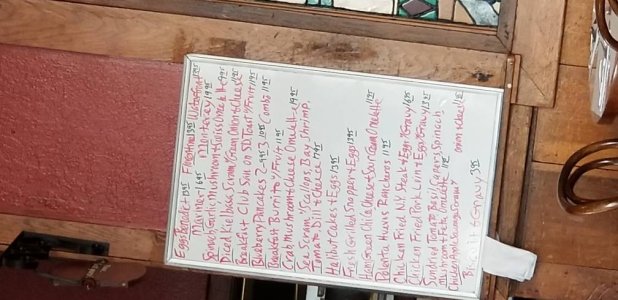 Eggs Benedict 13.95 Florentine 13.95 Waterfront
Mariner 16.95 Monterey 19.95
Spinach Garlic Mushroom & Swiss Omelette
Diced Kielbasa, Scram w/Green Onion & Cheese
Breakfast Club San on SD Toast w/Fruit 11.95
Blueberry Pancakes 2 3 Combo
Breakfast Burrito w/Fruit 11.95
Crab Mushroom & Cheese Omelette 19.95
Sea Scram w/Scallops, Bay Shrimp,
Tomato Dill & Cheese 17.95
Halibut Cakes & Eggs 13.95
Fresh Grilled Snapper & Eggs 13.95
Ham Green Chile Cheese & Sour Cream Omelette
Polenta Huevos Rancheros 11.95
Chicken Fried N.Y. Steak & Eggs w/Gravy
Chicken Fried Pork Loin & Eggs w/Gravy 13.95
Sundried Tomato Basil Capers Spinach
Mushroom & Feta Omelette
Chicken Apple Sausage Scram w/ onion & ched
& Gravy 3.95